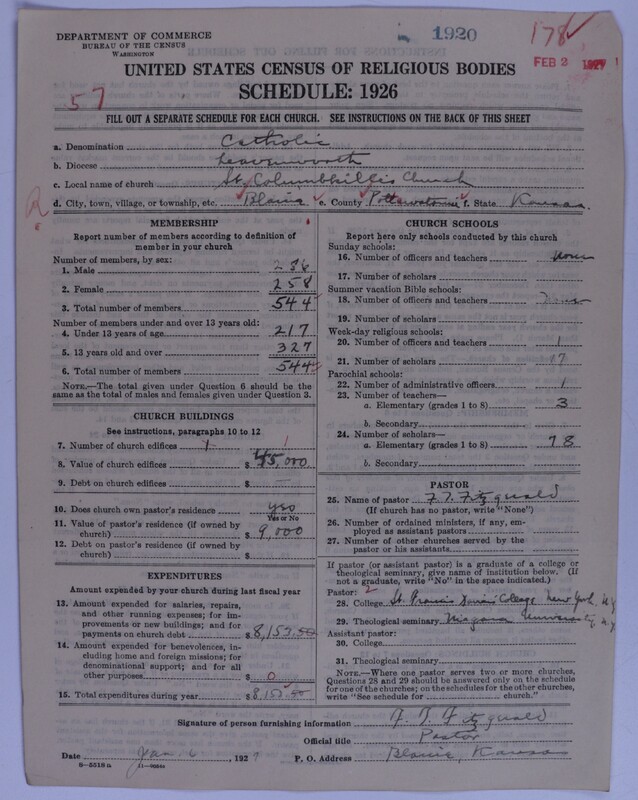 DEPARTMENT OF COMMERCE
BUREAU OF THE CENSUS
WASHINGTON
1920
178
FEB 2 1927
UNITED STATES CENSUS OF RELIGIOUS BODIES
SCHEDULE: 1926
57
FILL OUT A SEPARATE SCHEDULE FOR EACH CHURCH. SEE INSTRUCTIONS ON THE BACK OF THIS SHEET
a. Denomination Catholic
b. Diocese Leavenworth
c. Local name of church St. Columbkillis Church
d. City, town, village, or township, etc. Blaine e. County Pottawatomie f. State Kansas.
R
MEMBERSHIP
Report number of members according to definition of member in your church
Number of members, by sex:
1. Male 286
2. Female 258
3. Total number of members 544
Number of members under and over 13 years old:
4. Under 13 years of age 217
5. 13 years old and over 327
6. Total number of members 544
NOTE.—The total given under Question 6 should be the
same as the total of males and females given under Question 3.
CHURCH BUILDINGS
See instructions, paragraphs 10 to 12
7. Number of church edifices 1 1
8. Value of church edifices $ 45,000
9. Debt on church edifices $ —
10. Does church own pastor's residence yes
Yes or No
11. Value of pastor's residence (if owned by
church) $ 9,000
12. Debt on pastor's residence (if owned by
church) $
EXPENDITURES
Amount expended by your church during last fiscal year
13. Amount expended for salaries, repairs,
and other running expenses; for im-
provements or new buildings; and for
payments on church debt $8,153.50
14. Amount expended for benevolences,
including home and foreign missions; for
denominational support; and for all
other purposes $ 0
15. Total expenditures during year $8,153.50
CHURCH SCHOOLS
Report here only schools conducted by this church
Sunday schools:
16. Number of officers and teachers None
17. Number of scholars
Summer vacation Bible schools:
18. Number of officers and teachers None
19. Number of scholars
Week-day religious schools:
20. Number of officers and teachers 1
21. Number of scholars 17
Parochial schools:
22. Number of administrative officers 1
23. Number of teachers—
a. Elementary (grades 1 to 8) 3
b. Secondary
24. Number of scholars—
a. Elementary (grades 1 to 8) 78
b. Secondary
PASTOR
25. Name of pastor F. T. Fitzgerald
(If church has no pastor, write "None")
26. Number of ordained ministers, if any, em-
ployed as assistant pastors
27. Number of other churches served by the
pastor or his assistants
If pastor (or assistant pastor) is a graduate of a college or
theological seminary, give name of institution below. (If
not a graduate, write "No" in the space indicated.)
Pastor: 2
28. College St. Francis Xavier College New York, N.Y
29. Theological seminary Niagara University, N.Y.
Assistant pastor:
30. College
31. Theological seminary
NOTE.—Where one pastor serves two or more churches,
Questions 28 and 29 should be answered only on the schedule
for one of the churches; on the schedules for the other churches,
write "See schedule for church."
Signature of person furnishing information F. T. Fitzgerald
Official title Pastor
Date Jan. 6, 1927 P. O. Address Blaine, Kansas
8—5518 a